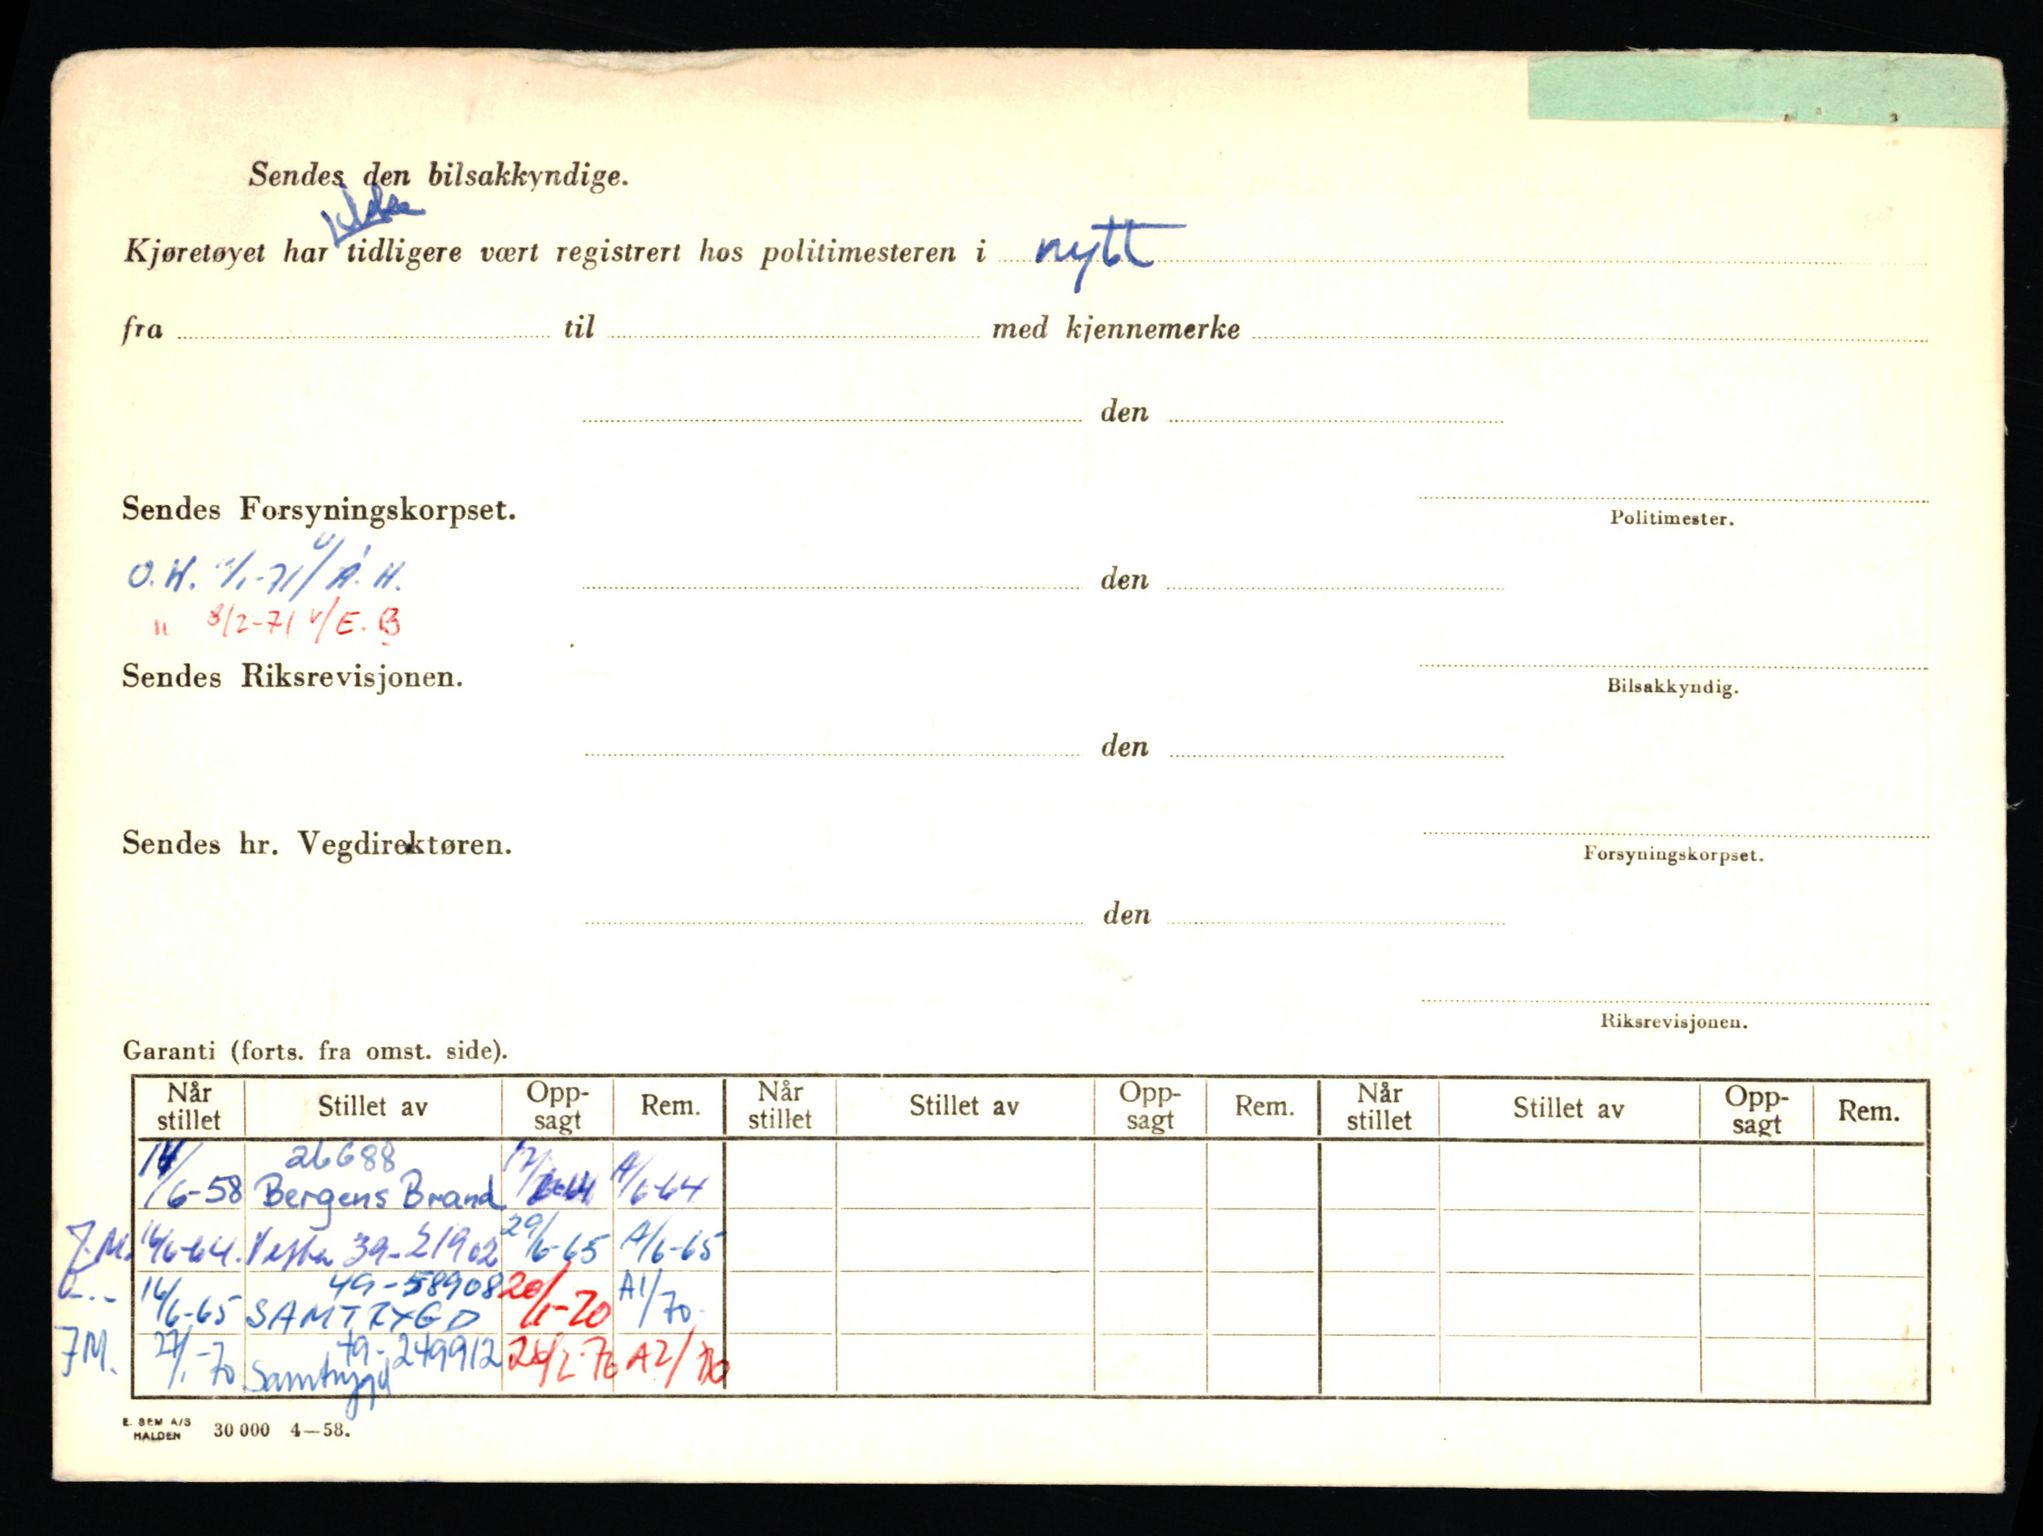 Sendes den bilsakkyndige.
Kjøretøyet har tidligere vært registrert hos politimesteren i nytt
fra til med kjennemerke
den
Sendes Forsyningskorpset.
Politimester.
O.H. /1-71 v/ Å.H.
den
" 8/2-71 v/E.B
Sendes Riksrevisjonen.
Bilsakkyndig.
den
Sendes hr. Vegdirektøren.
Forsyningskorpset.
den
Riksrevisjonen.
Garanti (forts. fra omst. side).
Når stillet Stillet av Opp-sagt Rem. Når stillet Stillet av Opp-sagt Rem. Når stillet Stillet av Opp-sagt Rem.
14/6-58 26688 Bergens Brand 17/ A/6-64
J.M. 16/6-64. Vesta 39-21902 29/6-65 A/6-65
16/6-65 49-58908 SAMTRYGD 20/1-70 A1/70-
JM. 27/1-70 79-249912 Samtrygd 26/2-70 A2/70
E. SEM A/S HALDEN 30 000 4—58.